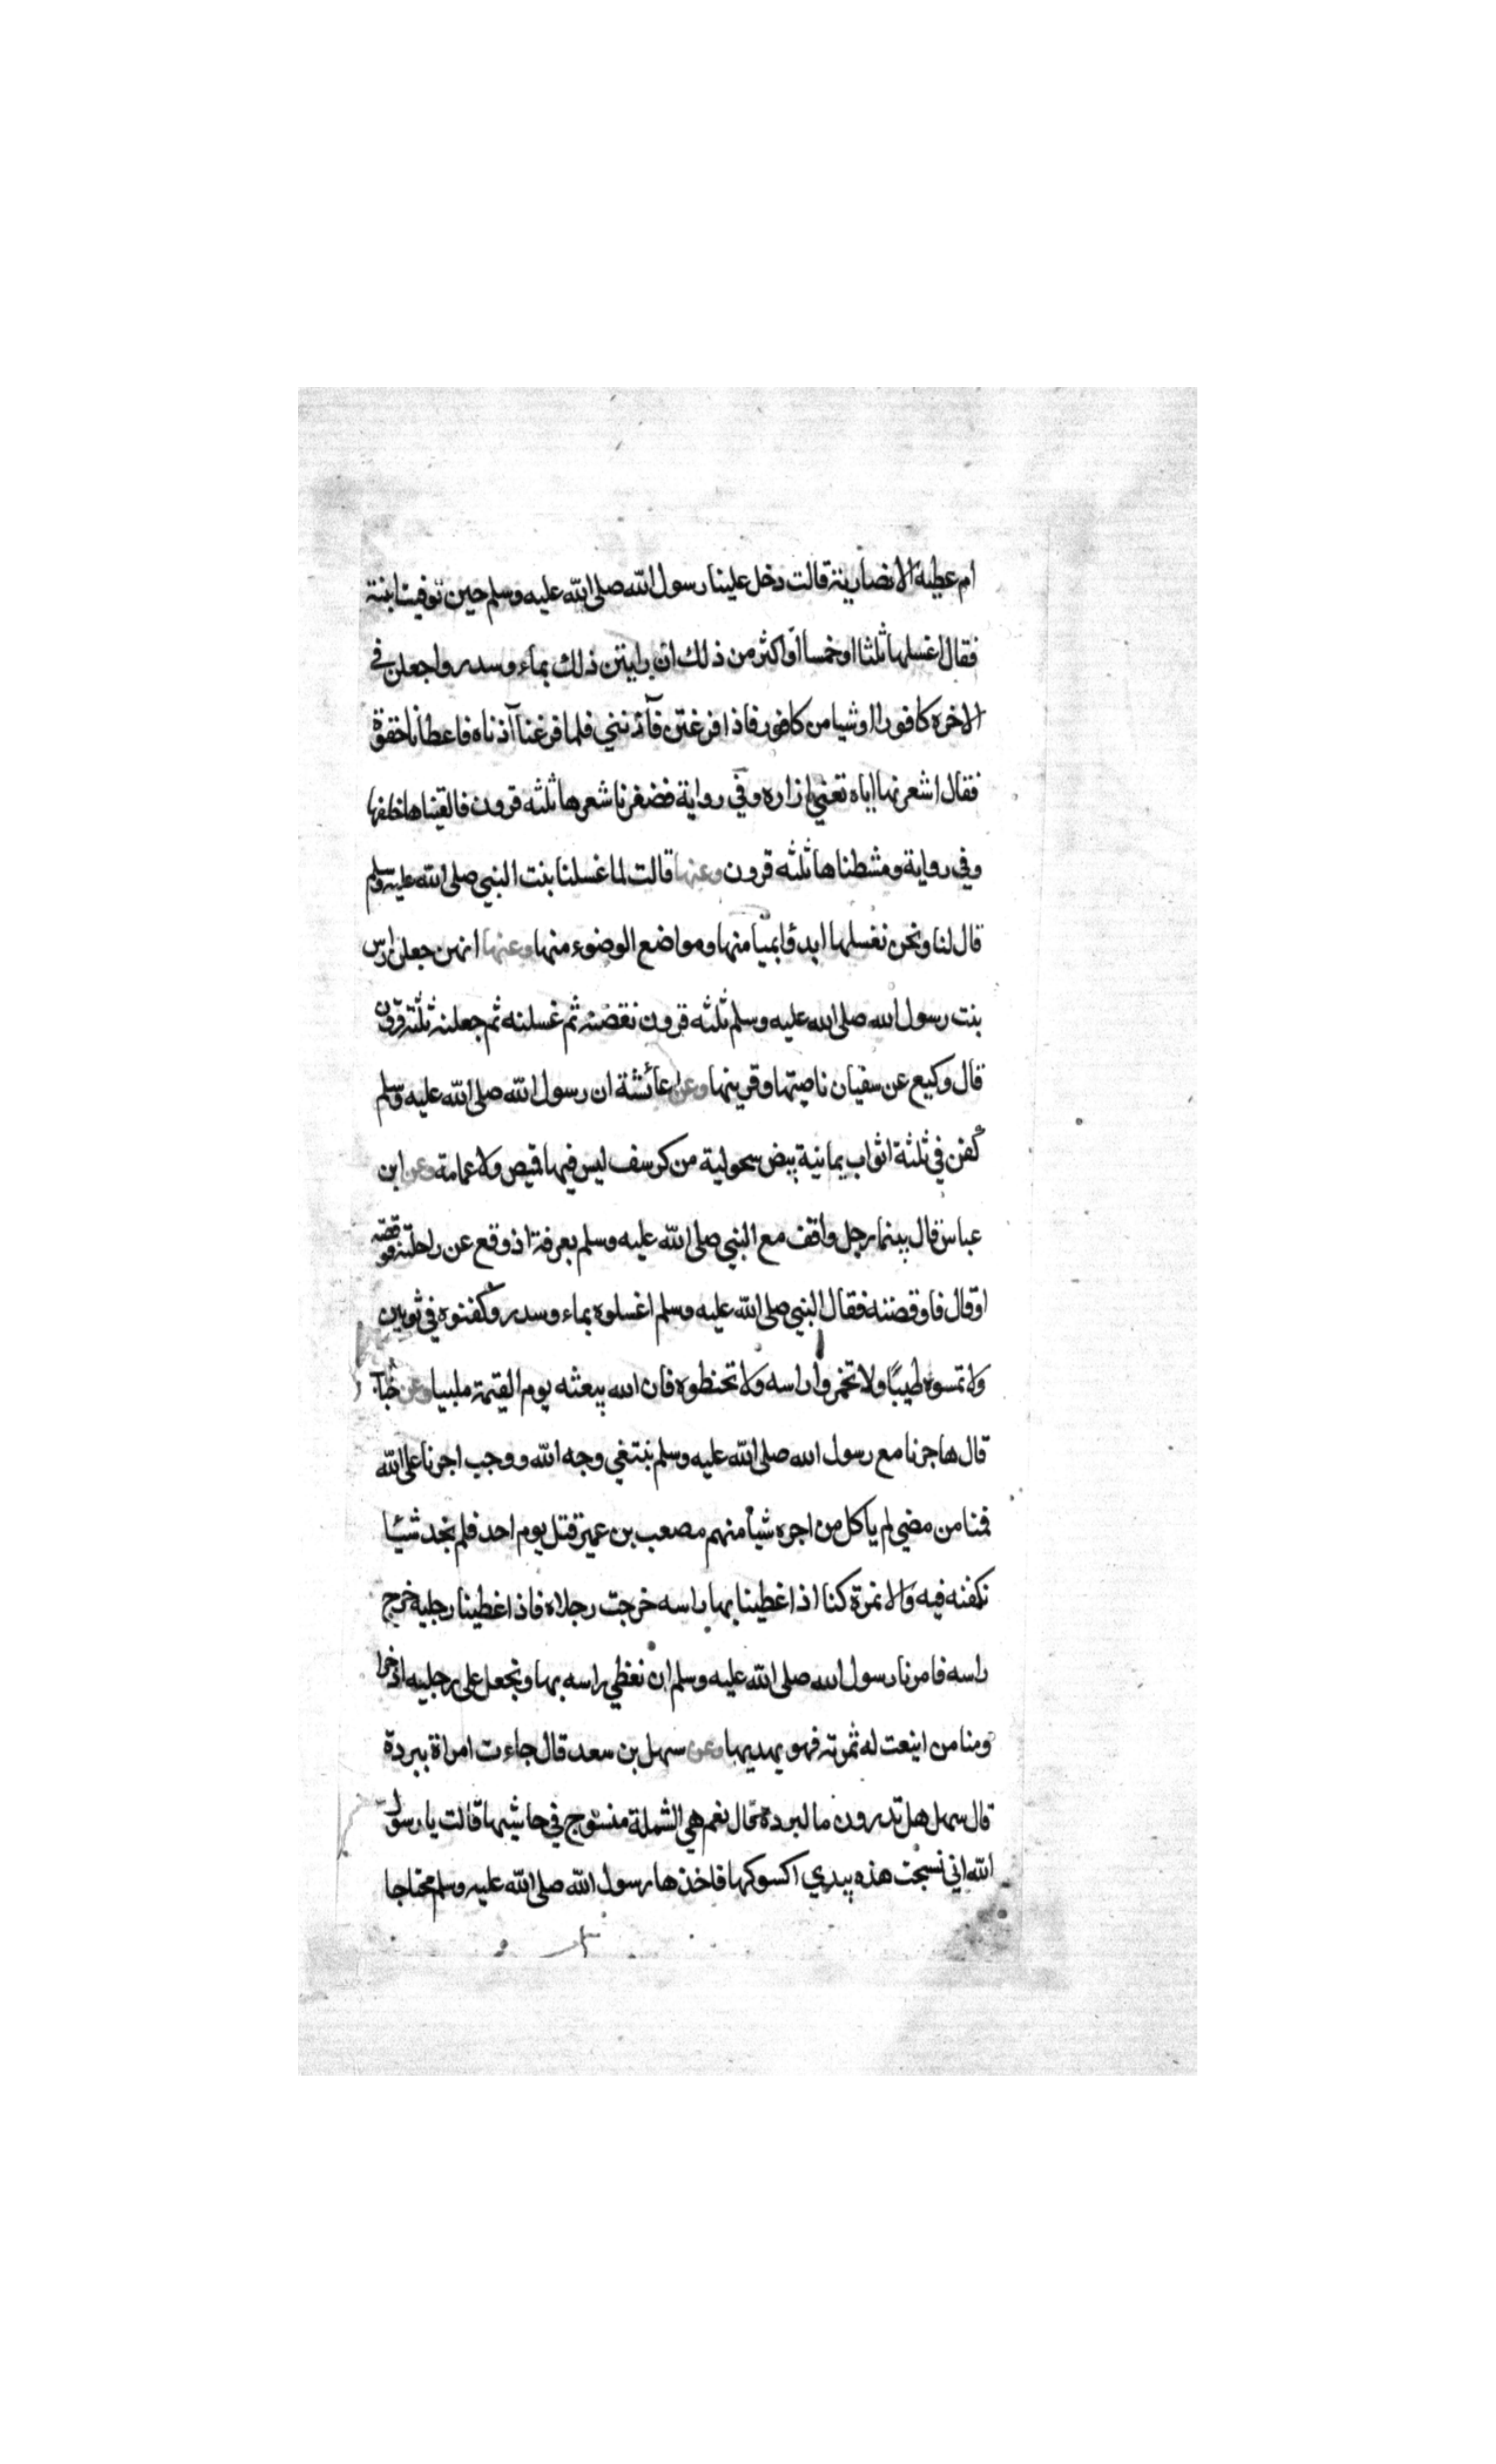 ام عطية الانصارية قالت دخل علينا رسول الله صلى الله عليه وسلم حين توفيت ابنته
فقال اغسلنها ثلثا او خمسا او اكثر من ذلك ان رايتن ذلك بماء وسدر واجعلن في
الاخره كافورا او شيا من كافور فاذا فرغتن فآذنني فلما فرغنا آذناه فاعطانا حقوه
فقال اشعرنها اياه تعني ازاره وفي رواية فضفرنا شعرها ثلثه قرون فالقيناها خلفها
وفي رواية ومشطناها ثلثه قرون وعنها قالت لما غسلنا بنت النبي صلى الله عليه وسلم
قال لنا ونحن نغسلها ابدؤا بميامنها ومواضع الوضوء منها وعنها انهن جعلن راس
بنت رسول الله صلى الله عليه وسلم ثلثه قرون نقضنه ثم غسلنه ثم جعلنه ثلثة قرون
قال وكيع عن سفيان ناصيتها وقرينها وعن عائشة ان رسول الله صلى الله عليه وسلم
كفن في ثلثة اثواب يمانية بيض سحولية من كرسف ليس فيها قميص ولا عمامة وعن ابن
عباس قال بينما رجل واقف مع النبي صلى الله عليه وسلم بعرفة اذ وقع عن راحلته فوقصته
او قال فاوقصته فقال النبي صلى الله عليه وسلم اغسلوه بماء وسدر وكفنوه في ثوبين
ولا تمسوه طيبًا ولا تخمروا راسه ولا تحنطوه فان الله يبعثه يوم القيمة ملبيا وعن
قال هاجرنا مع رسول الله صلى الله عليه وسلم نبتغي وجه الله ووجب اجرنا على الله
فمنا من مضي لم ياكل من اجره شيأ منهم مصعب بن عمير قتل يوم احد فلم نجد شيئا
نكفنه فيه الا نمرة كنا اذا غطينا بها راسه خرجت رجلاه فاذا غطينا رجليه خرج
راسه فامرنا رسول الله صلى الله عليه وسلم ان نغطي راسه بها ونجعل على رجليه اذخرا
ومنا من اينعت له ثمرته فهو يهديها وعن سهل بن سعد قال جاءت امراة ببردة
قال سهل هل تدرون ما لبردة قال نعم هي الشملة منسوج في حاشيتها قالت يا رسول
الله اني نسجت هذه بيدي اكسوكها فاخذها رسول الله صلى الله عليه وسلم محتاجا